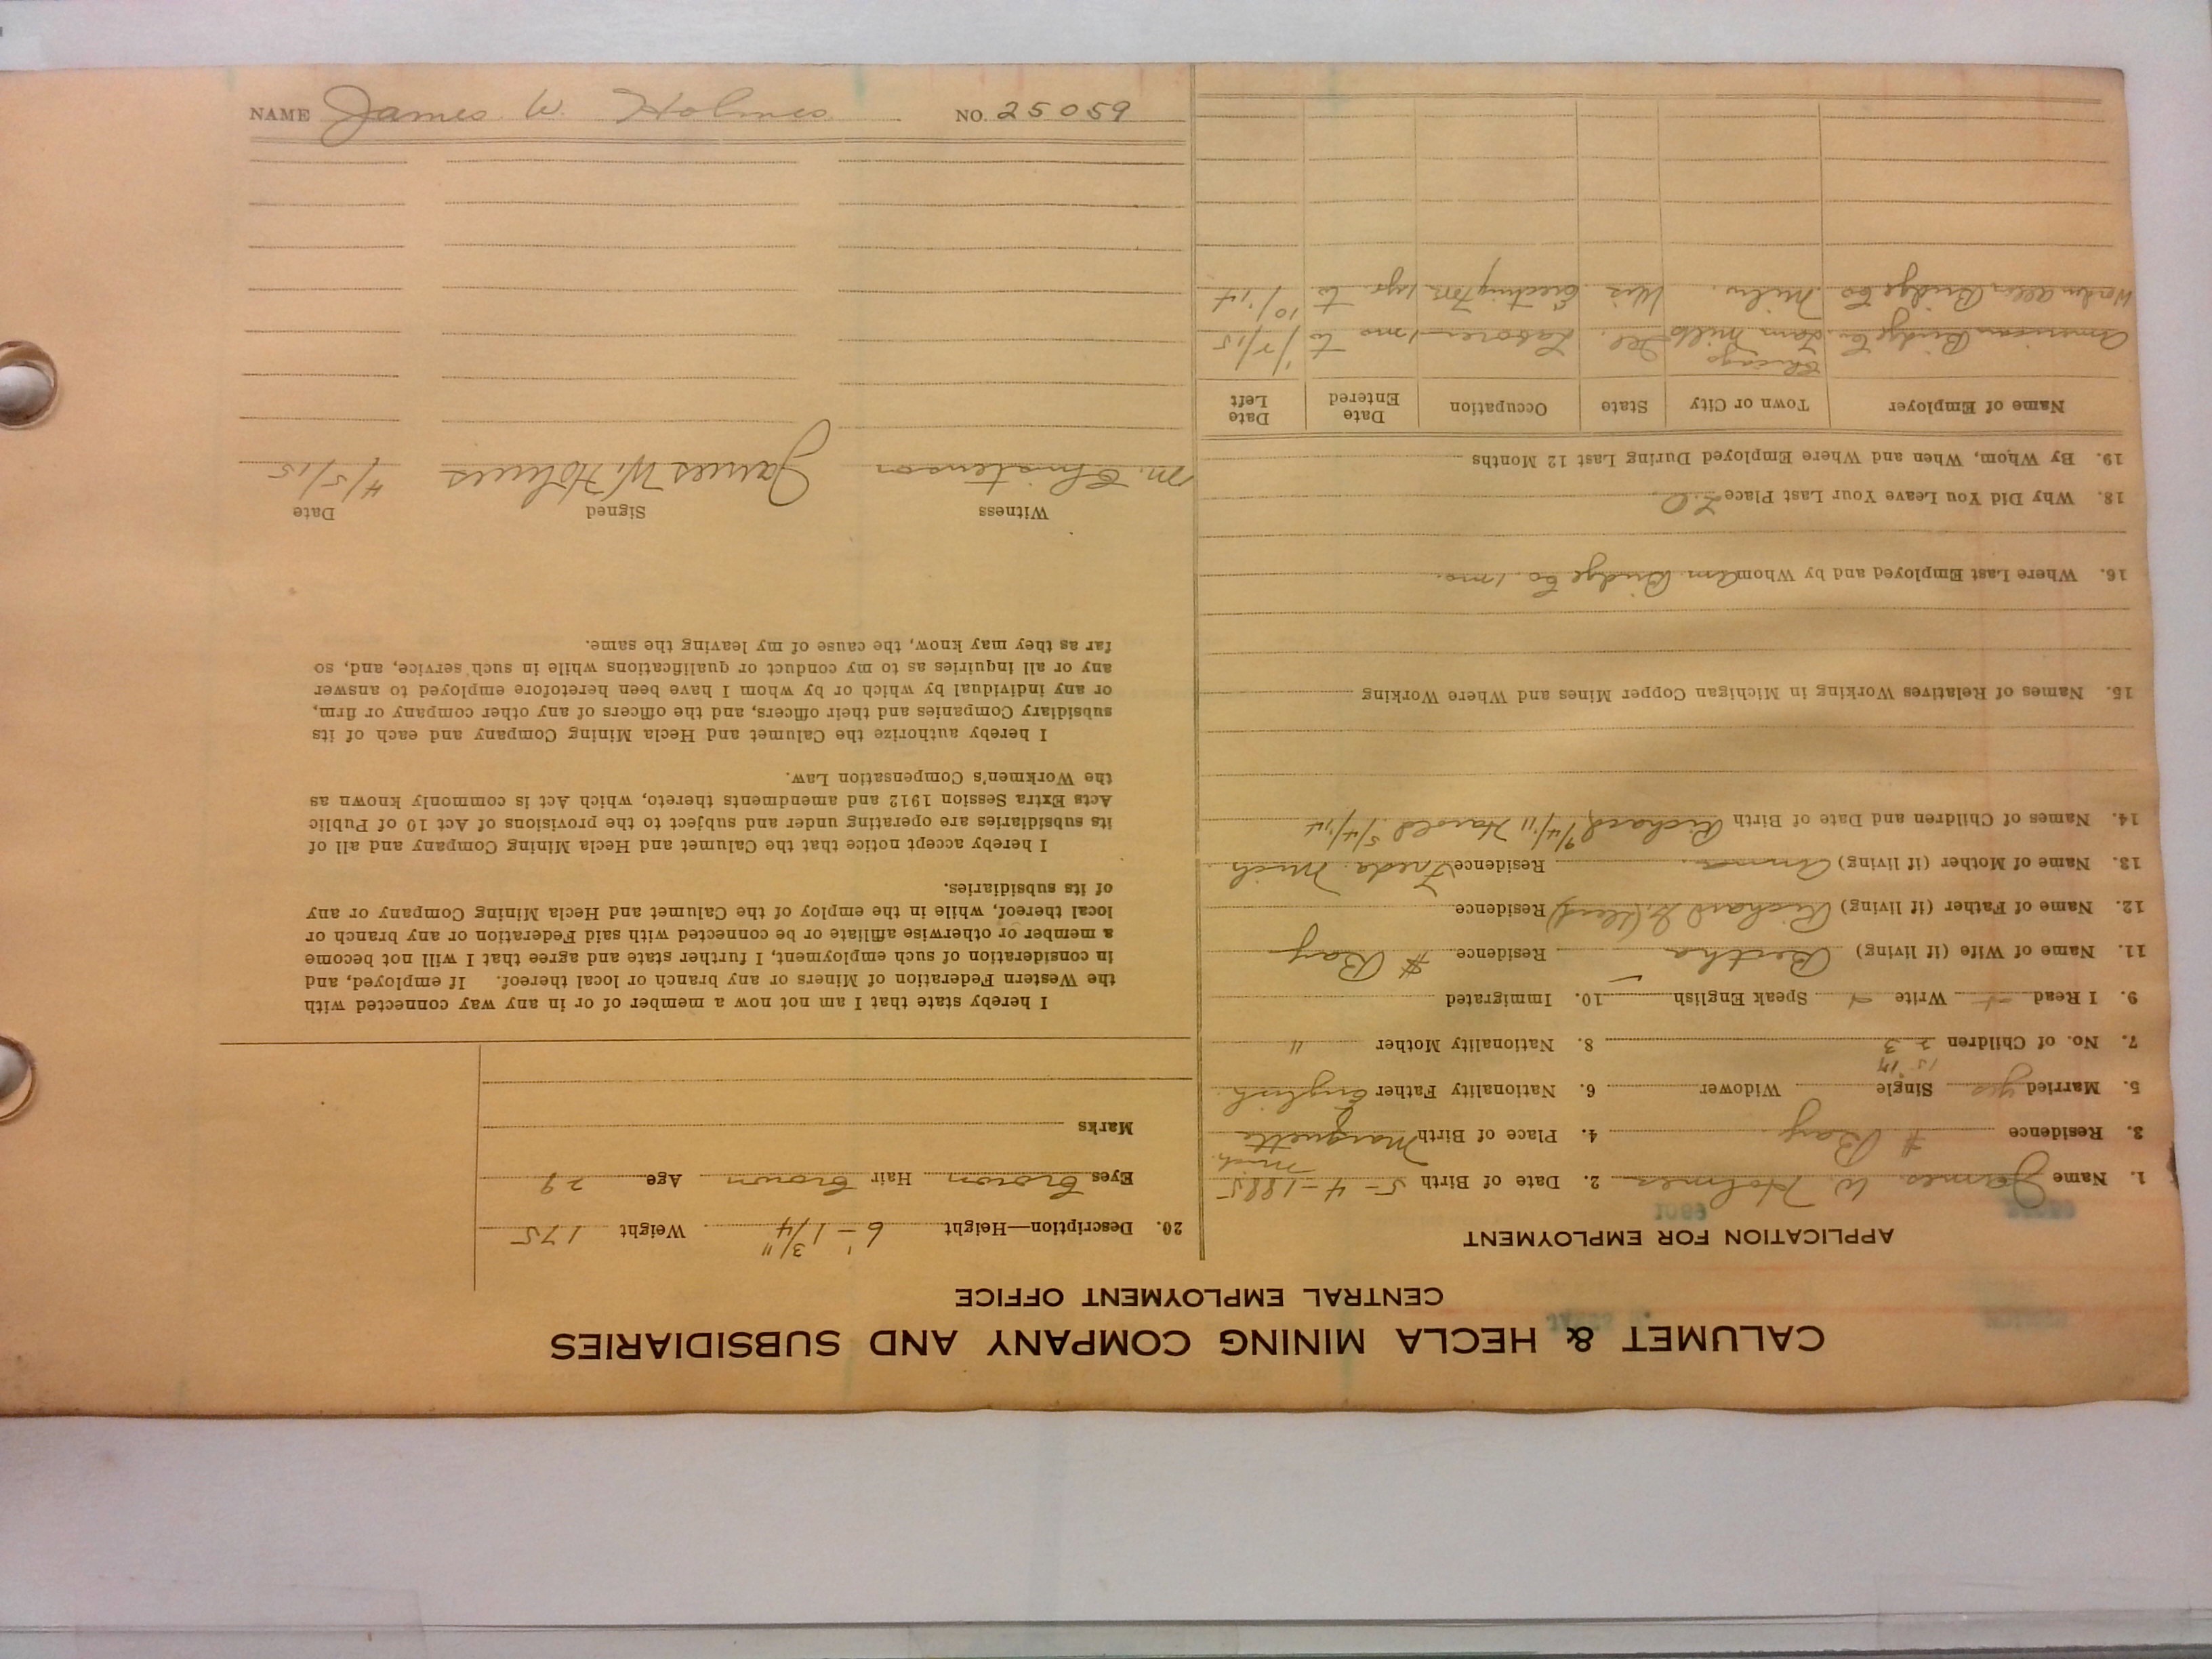 CALUMET & HECLA MINING COMPANY AND SUBSIDIARIES
CENTRAL EMPLOYMENT OFFICE
APPLICATION FOR EMPLOYMENT
1. Name James W. Holmes 2. Date of Birth 5-4-1885
Mich
3. Residence # Bay 4. Place of Birth Marquette
5. Married yes Single Widower 6. Nationality Father English
7. No. of Children 2 3 8. Nationality Mother "
9. I Read Write Speak English 10. Immigrated
11. Name of Wife (if living) Bertha Residence # Bay
12. Name of Father (if living) Richard Residence
13. Name of Mother (if living) Anna Residence Freda Mich
14. Names of Children and Date of Birth Richard 9/4/11 Harold 5/4/14
15. Names of Relatives Working in Michigan Copper Mines and Where Working
16. Where Last Employed and by Whom Am Bridge Co. 1 mo.
18. Why Did You Leave Your Last Place
19. By Whom, When and Where Employed During Last 12 Months
Name of Employer Town or City State Occupation Date Entered Date Left
Chicago
American Bridge Co. Ill. Laborer 1 mo to
Bridge Co Milw. Wis to 10/14
20. Description—Height 6'-1 3/4" Weight 175
Eyes Brown Hair Brown Age 29
Marks
I hereby state that I am not now a member of or in any way connected with
the Western Federation of Miners or any branch or local thereof. If employed, and
in consideration of such employment, I further state and agree that I will not become
a member or otherwise affiliate or be connected with said Federation or any branch or
local thereof, while in the employ of the Calumet and Hecla Mining Company or any
of its subsidiaries.
I hereby accept notice that the Calumet and Hecla Mining Company and all of
its subsidiaries are operating under and subject to the provisions of Act 10 of Public
Acts Extra Session 1912 and amendments thereto, which Act is commonly known as
the Workmen's Compensation Law.
I hereby authorize the Calumet and Hecla Mining Company and each of its
subsidiary Companies and their officers, and the officers of any other company or firm,
or any individual by which or by whom I have been heretofore employed to answer
any or all inquiries as to my conduct or qualifications while in such service, and, so
far as they may know, the cause of my leaving the same.
Witness Signed Date
M. Christenson James W. Holmes 4/5/15
NAME James W. Holmes NO. 25059